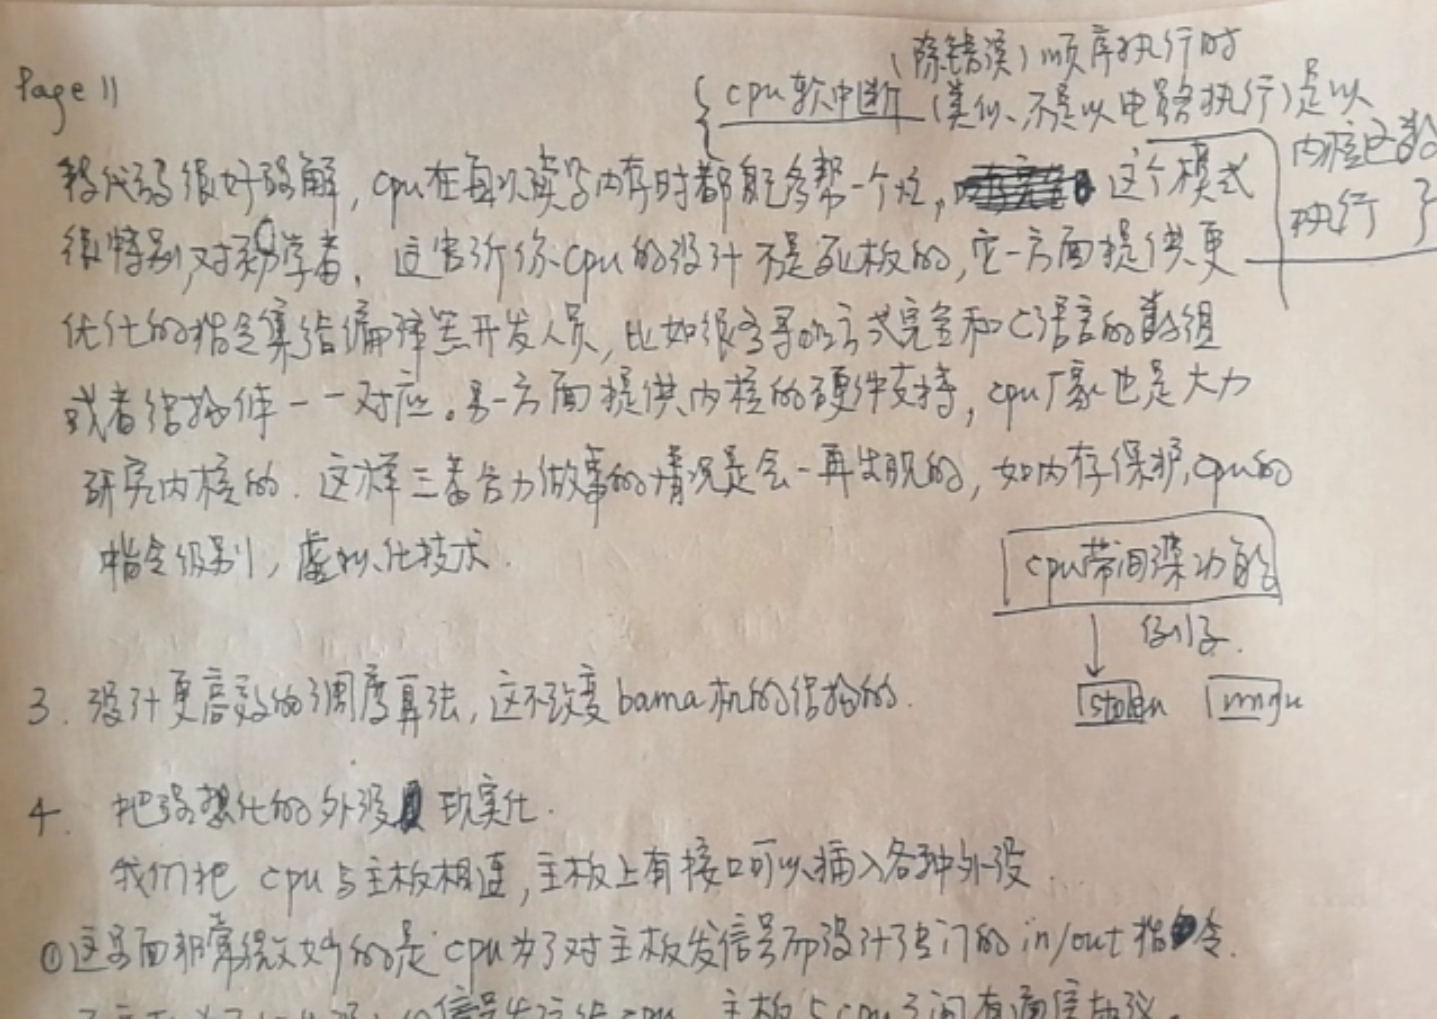 Page 11
(除错误)顺序执行时
cpu软中断(类似、不是以电路执行)是以
内核函数
执行了
代码很好理解,cpu在每次读写内存时都能多帮一个忙,这个模式
很特别,对初学者。这告诉你cpu的设计不是死板的,它一方面提供更
优化的指令集给编译器开发人员,比如很多寻址方式完全和C语言的数组
或者结构体一一对应。另一方面提供内核的硬件支持,cpu厂家也是大力
研究内核的.这样三者合力做事的情况是会一再出现的,如内存保护,cpu的
指令级别,虚拟化技术.
cpu带回滚功能
例子.
token mmgu
3. 设计更高效的调度算法,这不改变bama机的结构的.
4. 把设想化的外设现实化.
我们把cpu与主板相连,主板上有接口可以插入各种外设.
①这里面非常微妙的是cpu为了对主板发信号而设计了专门的in/out指令.
主板与cpu之间有通信协议。